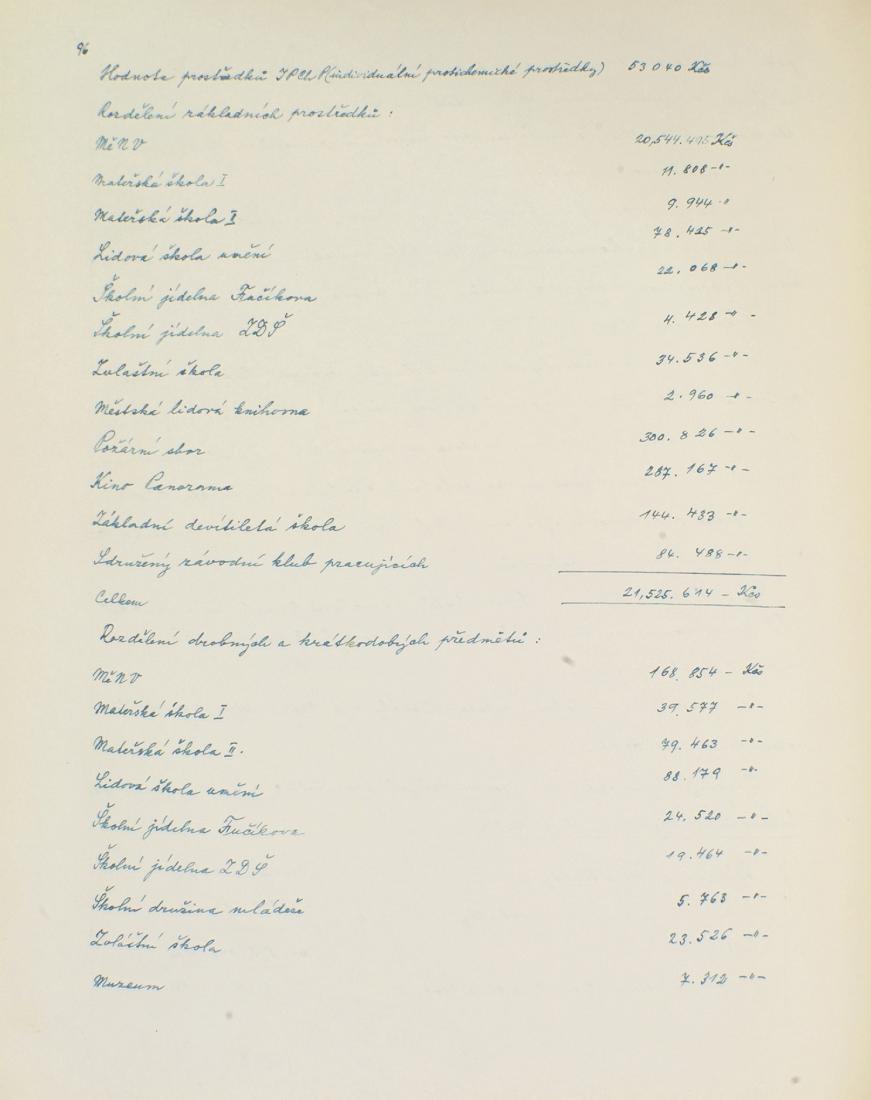 96
Hodnota prostředků IPCHP (individuální protichemické prostředky) 53 040 Kčs
Rozdělení základních prostředků :
MěNV 20,544.495 Kčs
Mateřská škola I 11.808 -"-
Mateřská škola II 9.944 -"
Lidová škola umění 78.425 -"-
Školní jídelna Fučíkova 22.068 -"-
Školní jídelna ZDŠ 4.428 -"-
Zvlaštní škola 34.536 -"-
Městská lidová knihovna 2.960 -"-
Požární sbor 300.826 -"-
Kino Panorama 287.167 -"-
Základní devítiletá škola 144.433 -"-
Sdružený závodní klub pracujících 84.488 -"-
Celkem 21,525.614 - Kčs
Rozdělení drobných a krátkodobých předmětů :
MěNV 168.854 - Kčs
Mateřská škola I 39.577 -"-
Mateřská škola II. 79.463 -"-
Lidová škola umění 88.179 -"-
Školní jídelna Fučíkova 24.520 -"-
Školní jídelna ZDŠ 19.464 -"-
Školní družina mládeže 5.763 -"-
Zvláštní škola 23.526 -"-
Muzeum 7.312 -"-